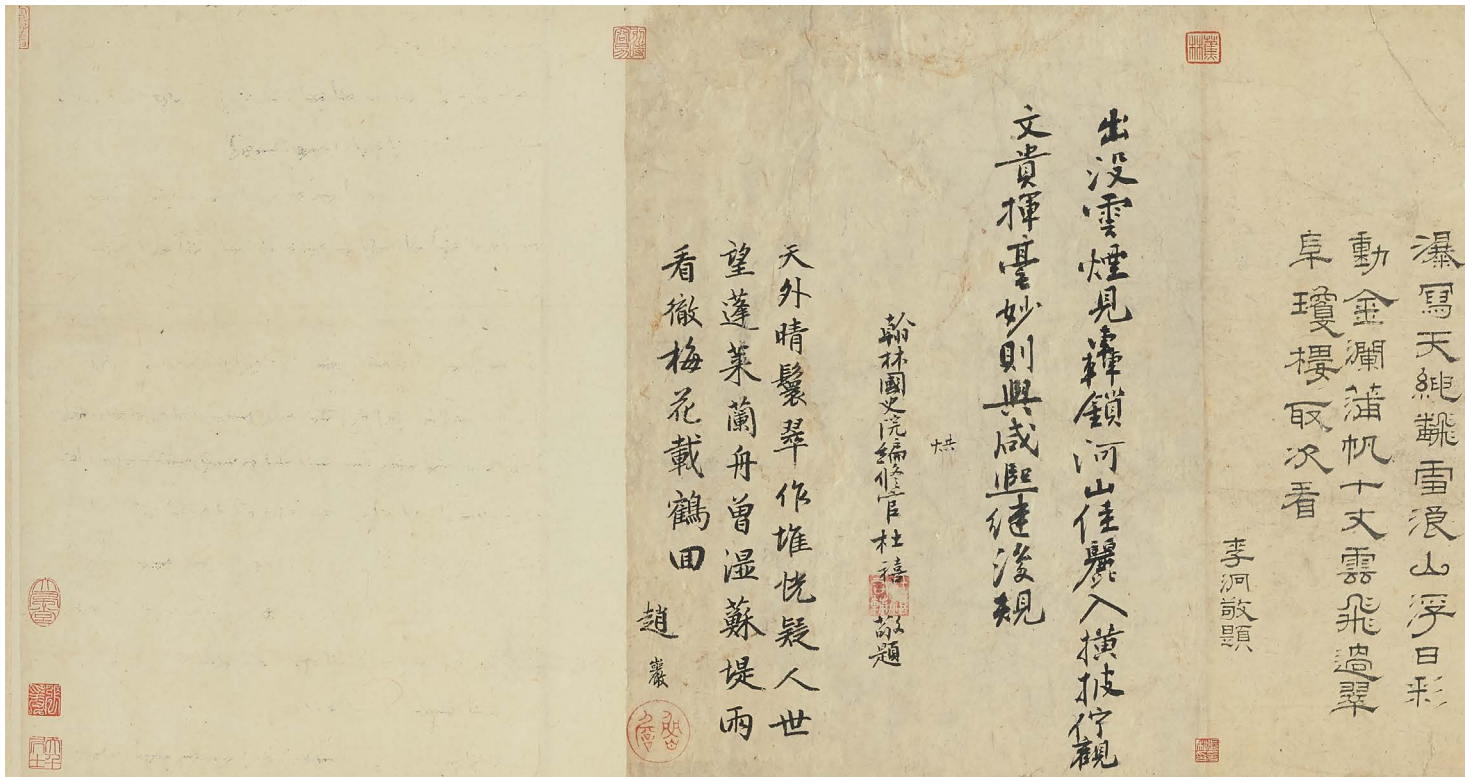 瀑寫天紳飜雪浪山浮日彩
動金瀾蒲帆十丈雲飛過翠
阜瓊樓取次看
李泂敬題
出没雲煙見鎖河山佳麗入撗披佇觀
文貴揮毫妙則與咸熙繼後規
烘
翰林國史院編修官杜禧敬題
天外晴鬟翠作堆恍疑人世
望蓬萊蘭舟曾湿蘇堤雨
看徹梅花載鶴回
趙巖
蕉林